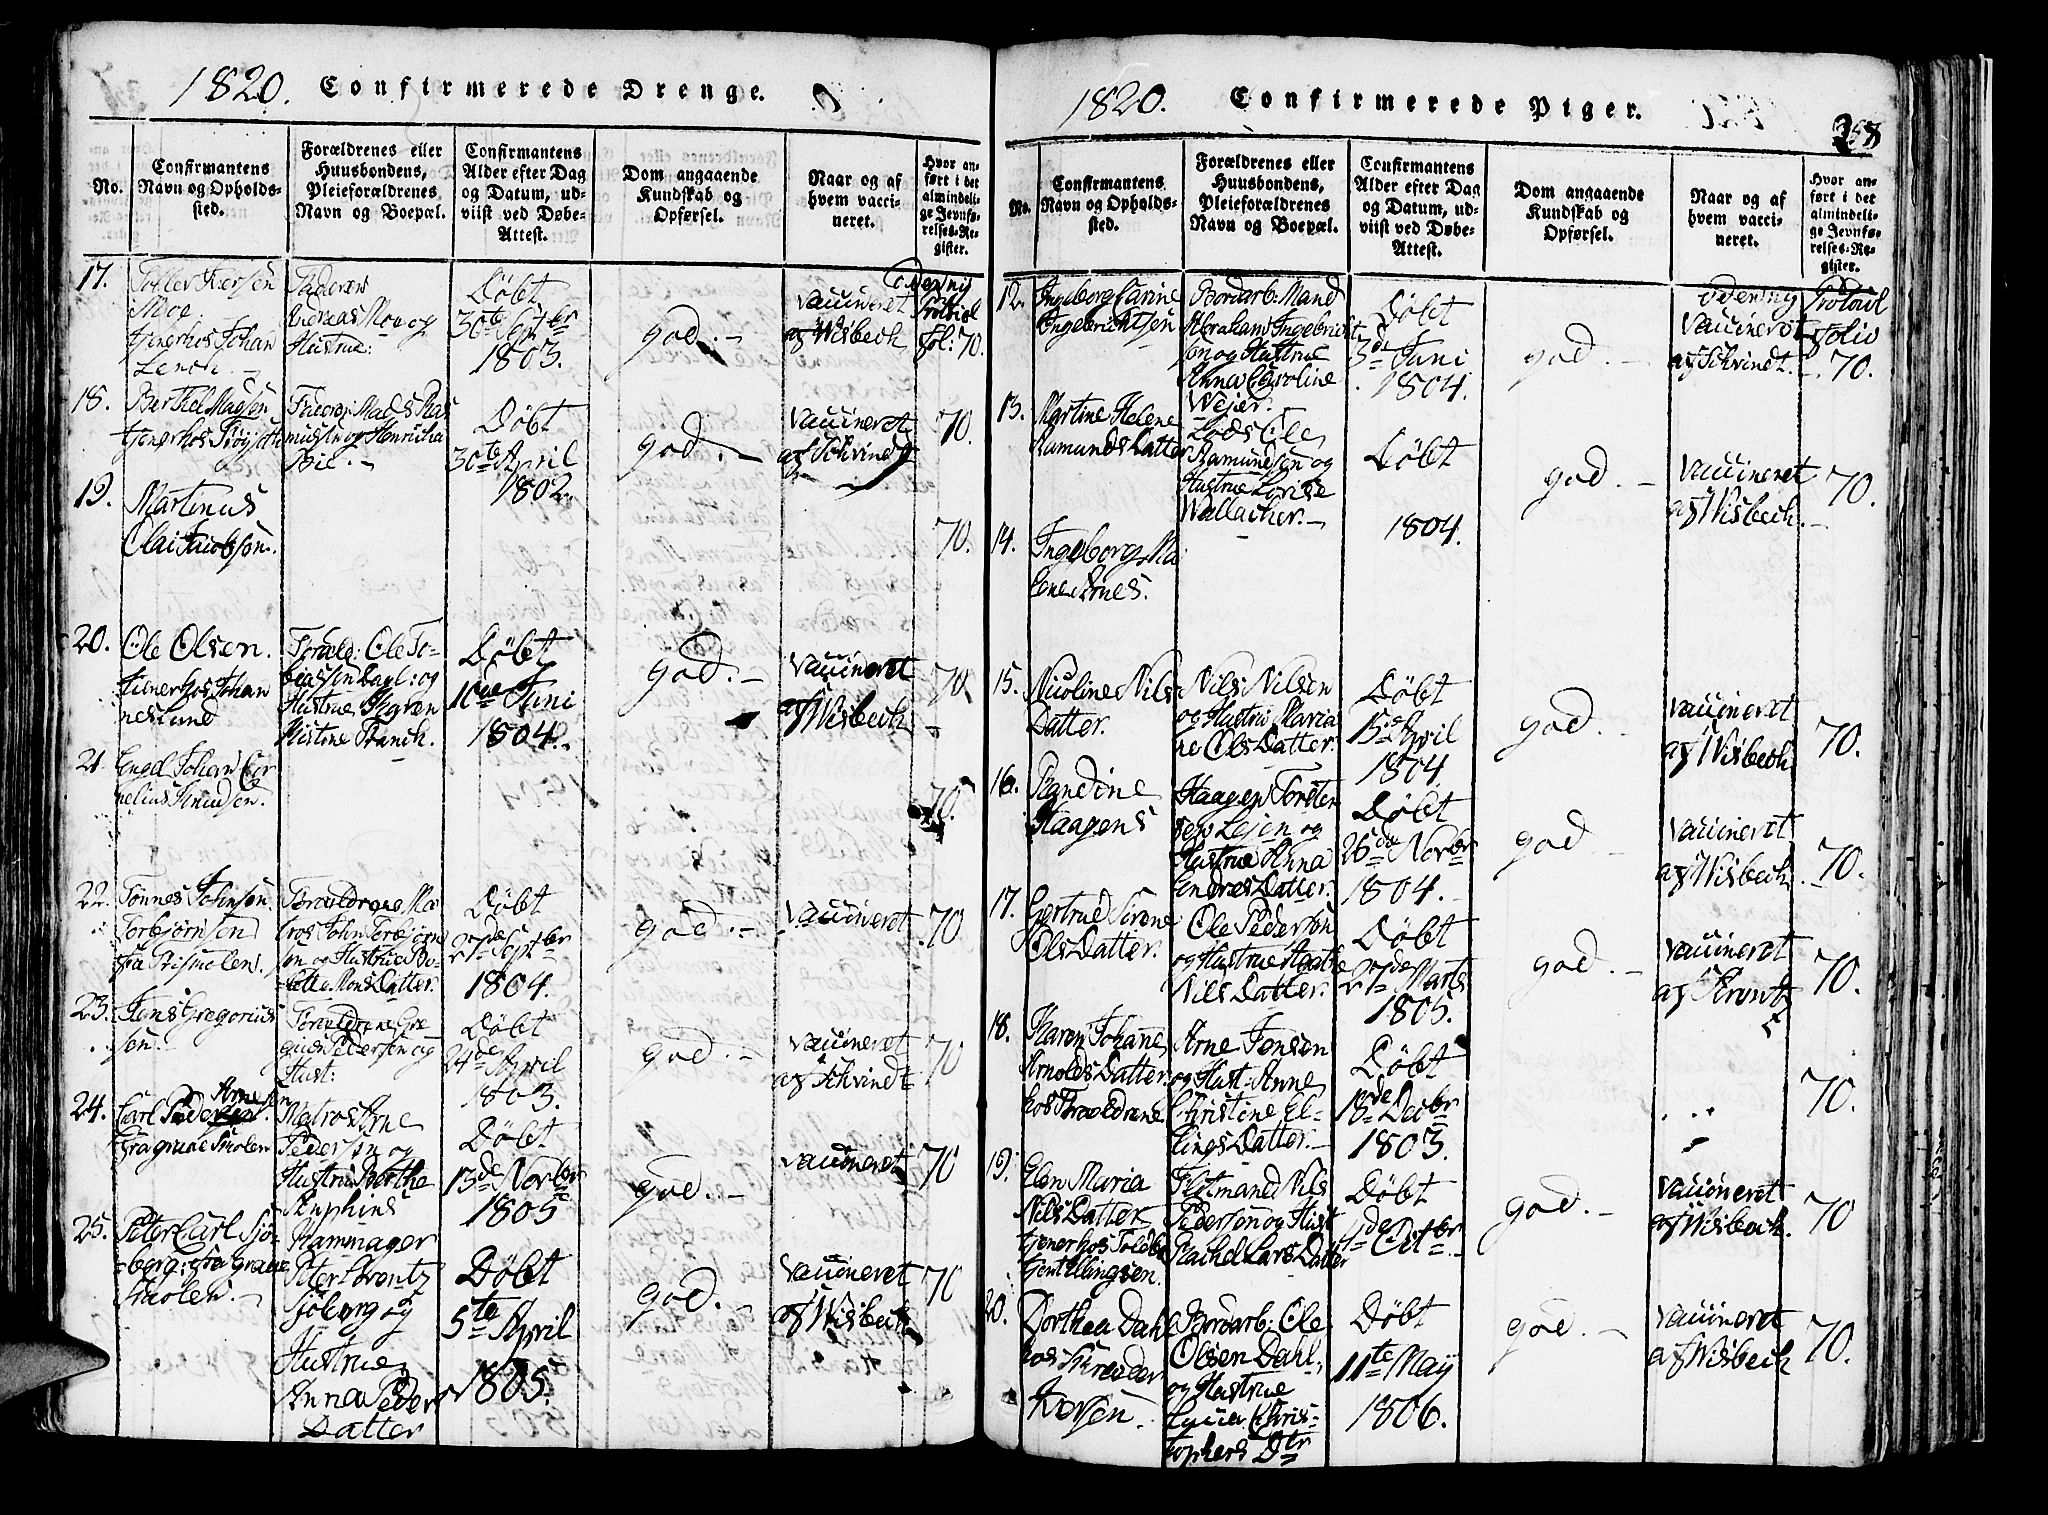 1820. Confirmerede Drenge.
No.
Confirmantens
Navn og Opholds-
sted.
Forældrenes eller
Huusbondens,
Pleieforældrenes
Navn og Boepæl.
Confirmantens
Alder efter Dag
og Datum, ud-
viist ved Døbe-
Attest.
Dom angaaende
Kundskab og
Opførsel.
Naar og af
hvem vacci-
neret.
Hvor an-
ført i det
almindeli-
ge Jevnfø-
relses-Re-
gister.
17.
Moe.
tjenerhos Johan
Moe og
Hustrue:
Døbt
30te Septbr
1803.
god.
vaccineret
af Wisbech
fol: 70.
18.
Berthel Madsen
Mads Ras
Døbt
30te April
1802.
god.
vaccineret
af Schvindt
70.
19.
Martinus
Olai Jacobsen.
70.
20.
Ole Olsen.
tjenerhos Johan
nes Lund
Foræld: Ole To-
og
Hustrue Karen
Kistine
Døbt
Juni
1804.
god.
vaccineret
af Wisbech
70
21.
Engel Johan Cor
nelius Knudsen.
70.
22.
Tønnes Johnsen
Torbjørnsen
Forældrene Ma
tros John Torbjørn
sen og Hustrue
Mons Datter.
Døbt
27de Septbr
1804.
god.
vaccineret
70
23.
Jens Gregorius
sen.
Forældrene Gre
Pedersen og
Hust:
Døbt
24de April
1803.
god.
vaccineret
af Schvindt
70
24.
Arnesen
Carl
Matros Arne
Pedersen og
Hustru Berthe
Døbt
13de Novbr
1805
god.
vaccineret
70
25.
Peter Carl Sjø-
berg: fra Graae
Smolen.
Kammager
Peter Lorentz
Sjøberg og
Hustrue
Anna Peder
Datter
Døbt
5te April
1805.
god.
vaccineret
af Wisbech
70
1820. Confirmerede Piger.
No.
Confirmantens
Navn og Opholds-
sted.
Forældrenes eller
Huusbondens,
Pleieforældrenes
Navn og Boepæl.
Confirmantens
Alder efter Dag
og Datum, ud-
viist ved Døbe-
Attest.
Dom angaaende
Kundskab og
Opførsel.
Naar og af
hvem vacci-
neret.
Hvor an-
ført i det
almindeli-
ge Jevnfø-
relses-Re-
gister.
12.
Ingeborg Carine
Ingebrichtsen
Bordarb: Mand
Abraham Ingebricht
sen og Hustrue
Anna Caroline
Wejer.
Døbt
3de Juni
1804.
god.
vaccineret
af Schvindt.
Protocol
folio
70.
13.
Martine Helene
Aamunds Datter
Lods Ole
Aamundsen og
Hustrue Lovise
Wallacher.
Døbt
1804.
god.
vaccineret
af Wisbech.
70.
14.
Ingeborg Ma
lene Arnes.
15.
Nicoline Nils
Datter.
Nils Nilsen
og Hustru Maria
ne Ols Datter.
Døbt
15de April
1804.
god.
vaccineret
af Wisbech
70.
16.
Randine
Haagens
Haagen Torsten
sen Lejen og
Hustrue Anna
Endres Datter.
Døbt
26de Novbr
1804.
god.
vaccineret
af Wisbech.
70.
17.
Gertrud Sirene
Ols Datter.
Ole Pedersen
og Hustrue Agathe
Nils Datter.
Døbt
27de Marts
1805.
god.
vaccineret
af Krontz
70.
18.
Karen Johanne
Arnolds Datter.
hos Forældrene
Arne Jensen
og Hust: Anne
Christine El-
lings Datter.
Døbt
Decbr
1803.
70.
19.
Elen Maria
Nils Datter
tjenerhos Toldbe
tjent Ellingsen.
Flotmand Nils
Pedersen og Hust
Rachel Lars Datter
Døbt
4de Octbr.
god.
vaccineret
af Wisbech.
70
20.
Dorthea Dahl
hos Skræder
Iversen.
Bordarb: Ole
Olsen Dahl,
og Hustrue
Lucia Chris-
tophers Dtr
Døbt
11te May
1806.
god.
vaccineret
af Wisbech
70.